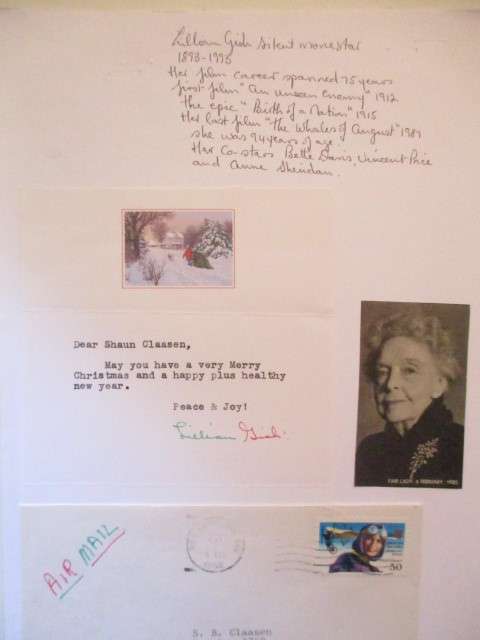 Lillian Gish silent movie star
1893-1993
Her film career spanned 75 years
first film "An unseen Enemy" 1912
the epic "Birth of a Nation" 1915
Her last film "The Whales of August" 1987
she was 94 years of age.
Her co-stars Bette Davis, Vincent Price
and Anne Sheridan.
Dear Shaun Claasen,
May you have a very Merry
Christmas and a happy plus healthy
new year.
Peace & Joy!
Lillian Gish
FAIR LADY 6 FEBRUARY 1985
AIR MAIL
50
S. B. Claasen